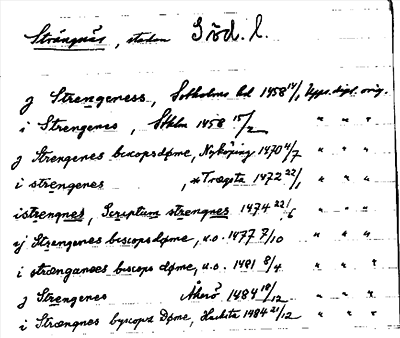 Strängnäs, staden Söd. l.
j Strengeness, Sotholms hd 1458 14/1, Upps. dipl. orig.
i Strengenes, Sthlm 1458 15/2 " " "
j Strengenes bescopsdøme, Nyköping 1470 4/7 " " "
i strengenes , *Træsta 1472 22/1 " " "
istrengnes, Scriptum strengnes 1474 22/6 " " "
ij Strengenes biscopsdøme, u.o. 1477 7/10 " " "
i strængances biscops døme, u.o. 1481 8/4 " " "
j Strengenes Åkerö 1484 18/12 " " "
i Strængnes byscops Døme, 1484 21/12 " " "